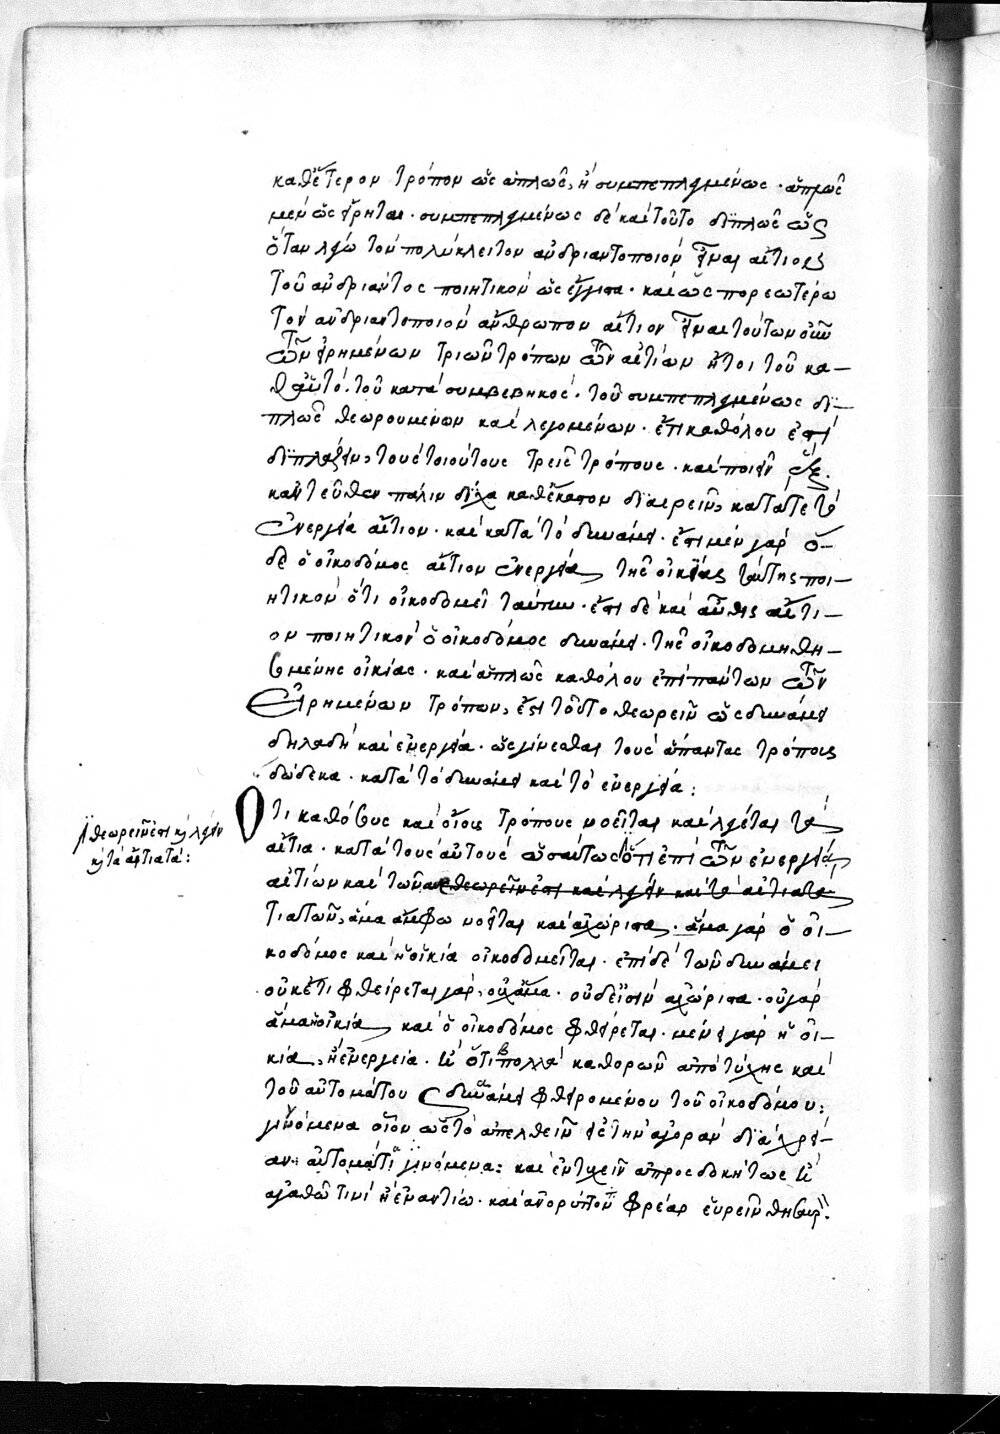 καθ' ἕτερον τρόπον ὡς ἁπλῶς, ἢ συμπεπλεγμένως · ἁπλῶς
μὲν ὡς εἴρηται · συμπεπλεγμένως δὲ καὶ τοῦτο διπλῶς ὡς
ὅταν λέγω τὸν πολύκλειτον ἀνδριαντοποιὸν εἶναι αἴτιον
τοῦ ἀνδριάντος ποιητικὸν ὡς ἔγγιστα · καὶ ὡς πορρωτέρω
τὸν ἀνδριαντοποιὸν ἄνθρωπον αἴτιον εἶναι τούτων οὖν
τῶν εἰρημένων τριῶν τρόπων τῶν αἰτίων ἤτοι τοῦ κα–
θ' αὑτό · τοῦ κατὰ συμβεβηκός · τοῦ συμπεπλεγμένως δι–
πλῶς θεωρουμένων καὶ λεγομένων · ἔτι καθόλου ἐστὶ
διπλάζειν, τοὺς τοιούτους τρεῖς τρόπους · καὶ ποιεῖν ἕξ.
κἀντεῦθεν πάλιν δίχα καθ' ἕκαστον διαιρεῖν, κατά τε τὸ
ἐνεργείᾳ αἴτιον · καὶ κατὰ τὸ δυνάμει · ἔστι μὲν γὰρ ὅ–
δε ὁ οἰκοδόμος αἴτιον ἐνεργείᾳ τῆς οἰκίας ταύτης ποι–
ητικὸν ὅτι οἰκοδομεῖ ταύτην · ἔστι δὲ καὶ αὖθις αἴτι–
ον ποιητικὸν ὁ οἰκοδόμος δυνάμει · τῆς οἰκοδομηθη–
σομένης οἰκίας · καὶ ἁπλῶς καθόλου ἐπὶ πάντων τῶν
εἰρημένων τρόπων, ἔστι τοῦτο θεωρεῖν ὡς δυνάμει
δηλαδὴ καὶ ἐνεργείᾳ · ὡς γίνεσθαι τοὺς ἅπαντας τρόπους
δώδεκα · κατὰ τὸ δυνάμει καὶ τὸ ἐνεργείᾳ :
Ὅτι καθ' ὅσους καὶ οἵους τρόπους νοεῖται καὶ λέγεται τὰ
αἴτια · κατὰ τοὺς αὐτοὺς ὡσαύτως θεωρεῖν ἔστι καὶ λέγειν
καὶ τὰ αἰτιατά :
ὅτι ἐπὶ τῶν ἐνεργείᾳ
αἰτίων καὶ τῶν αἰ θεωρεῖν ἔστι καὶ λέγειν καὶ τὰ αἰτιατὰ
τιατῶν, ἅμα ἄμφω νοεῖται καὶ ἀχώριστα · ἅμα γὰρ ὁ οἰ–
κοδόμος καὶ ἡ οἰκία οἰκοδομεῖται · ἐπὶ δὲ τῶν δυνάμει
οὐκέτι φθείρεται γὰρ, οὐχ ἅμα · οὐδ' εἰσὶν ἀχώριστα · οὐ γὰρ
ἅμα ἡ οἰκία καὶ ὁ οἰκοδόμος φθείρεται · μένει γὰρ ἡ οἰ–
κία, ἡ ἐνέργεια · καὶ ὅτι πολλὰ καθορῶν ἀπὸ τύχης καὶ
τοῦ αὐτομάτου δυνάμει φθειρομένου τοῦ οἰκοδόμου :
γινόμενα οἷον ὡς τὸ ἀπελθεῖν εἰς τὴν ἀγορὰν διὰ χρεί–
αν αὐτομάτως γινόμενα : καὶ ἐντυχεῖν ἀπροσδοκήτως καὶ
ἀγαθῷ τινὶ ἢ ἐναντίῳ · καὶ ἀνορύττον φρέαρ εὑρεῖν θησαυρόν.